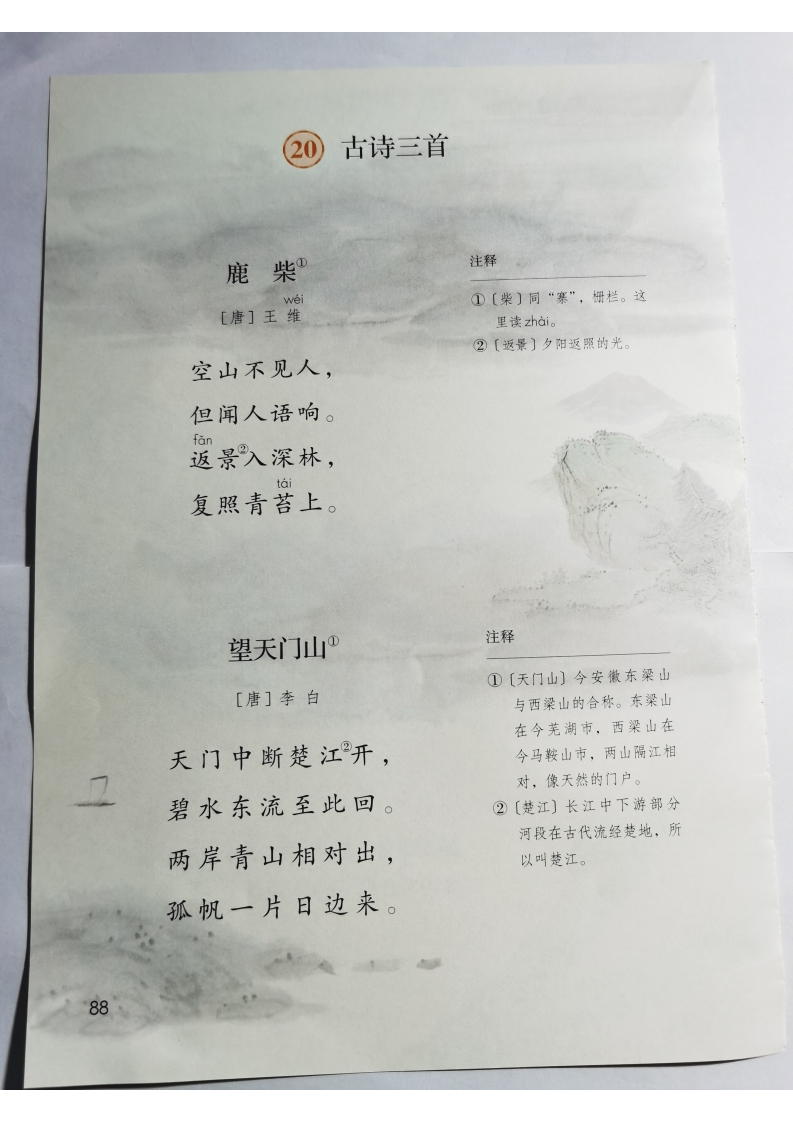 20 古诗三首
鹿 柴①
wéi
［唐］王 维
空山不见人，
但闻人语响。
fǎn
返景②入深林，
tái
复照青苔上。
注释
①〔柴〕同“寨”，栅栏。这
里读zhài。
②〔返景〕夕阳返照的光。
望天门山①
［唐］李 白
天门中断楚江②开，
碧水东流至此回。
两岸青山相对出，
孤帆一片日边来。
注释
①〔天门山〕今安徽东梁山
与西梁山的合称。东梁山
在今芜湖市，西梁山在
今马鞍山市，两山隔江相
对，像天然的门户。
②〔楚江〕长江中下游部分
河段在古代流经楚地，所
以叫楚江。
88